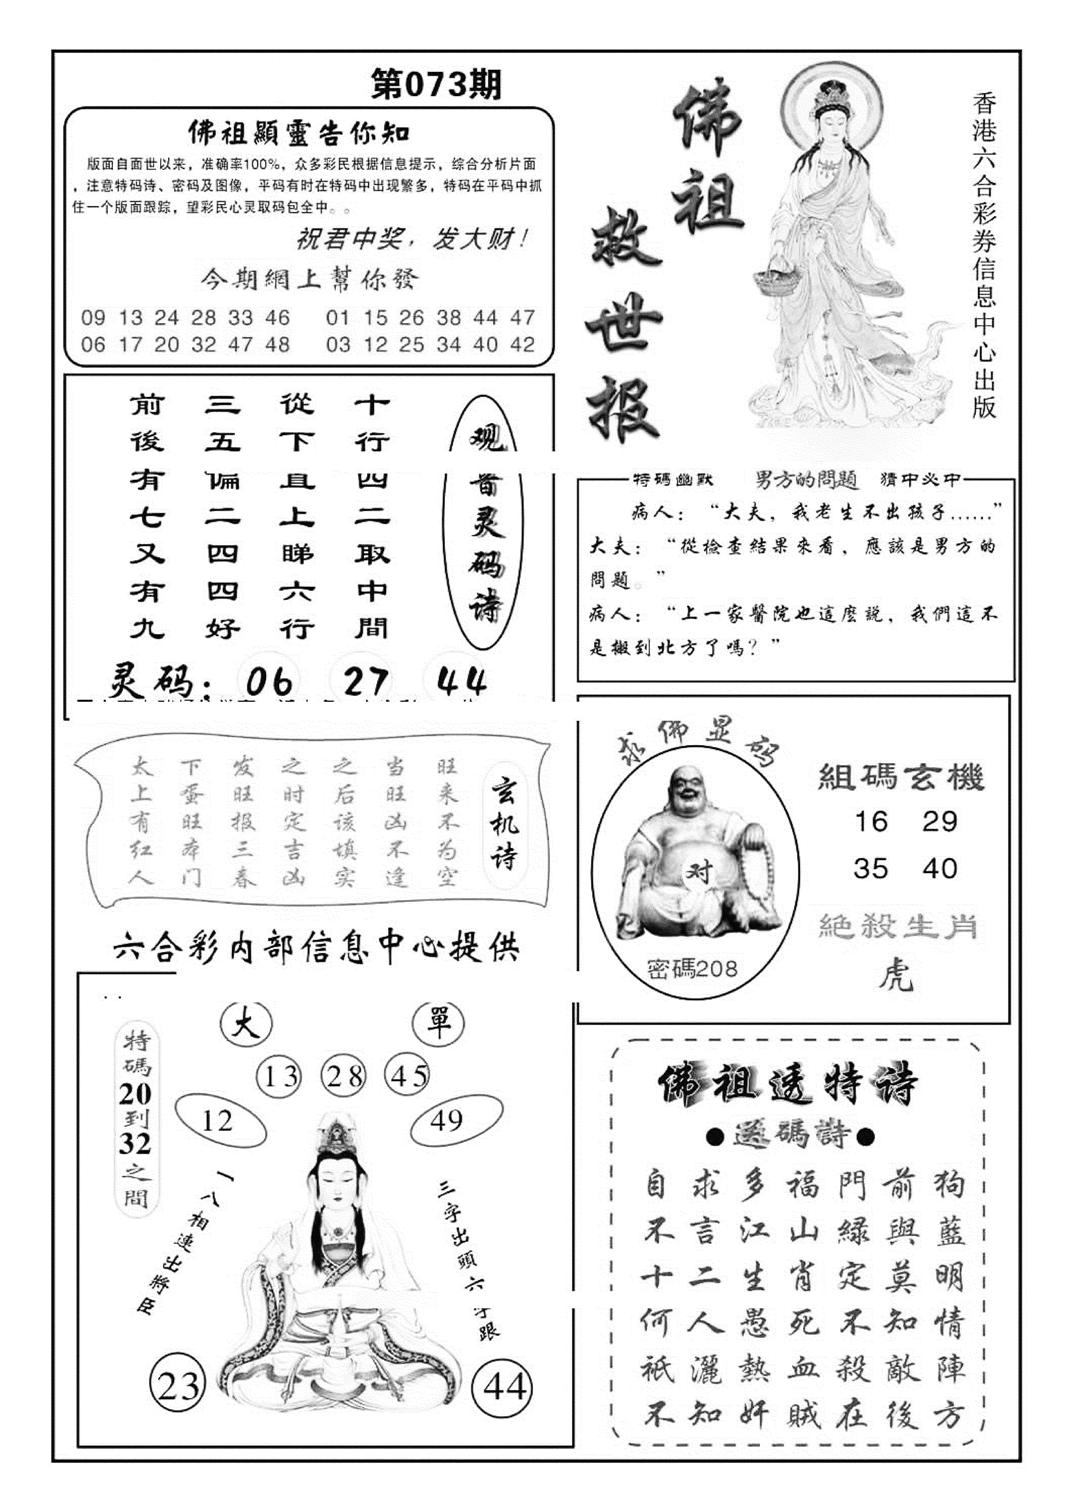 第073期
佛祖顯靈告你知
版面自面世以来，准确率100%，众多彩民根据信息提示，综合分析片面
，注意特码诗、密码及图像，平码有时在特码中出现繁多，特码在平码中抓
住一个版面跟踪，望彩民心灵取码包全中。。
祝君中奖，发大财！
今期網上幫你發
09 13 24 28 33 46 01 15 26 38 44 47
06 17 20 32 47 48 03 12 25 34 40 42
佛祖
救世报
香港六合彩券信息中心出版
观音灵码诗
十行四二取中間
從下直上睇六行
三五偏二四四好
前後有七又有九
灵码：06 27 44
特碼幽默 男方的問題 猜中必中
病人：“大夫，我老生不出孩子......”
大夫：“從檢查結果來看，應該是男方的
問題。”
病人：“上一家醫院也這麼説，我們這不
是搬到北方了嗎？”
玄机诗
旺来不为空
当旺凶不逢
之后该填实
之时定吉凶
发旺报三春
下蛋旺本门
太上有红人
六合彩内部信息中心提供
求佛显码
对
密碼208
組碼玄機
16 29
35 40
絕殺生肖
虎
大 單
13 28 45
12 49
特碼20到32之間
一八相連出將臣
三字出頭六字跟
23 44
佛祖透特诗
●送碼詩●
自求多福門前狗
不言江山緑與藍
十二生肖定莫明
何人愚死不知情
衹灑熱血殺敵陣
不知奸賊在後方